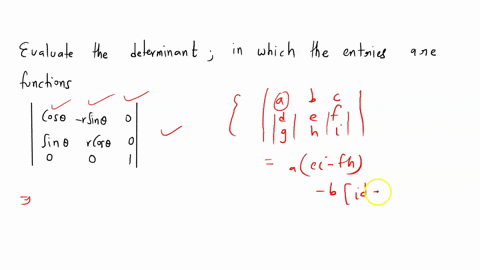 Evaluate the determinant ; in which the entries are
functions
| cosθ -rsinθ 0 |
| sinθ rcosθ 0 |
| 0 0 1 |
{ | a b c |
| d e f |
| g h i |
= a(ei-fh)
-b[id-
⇒